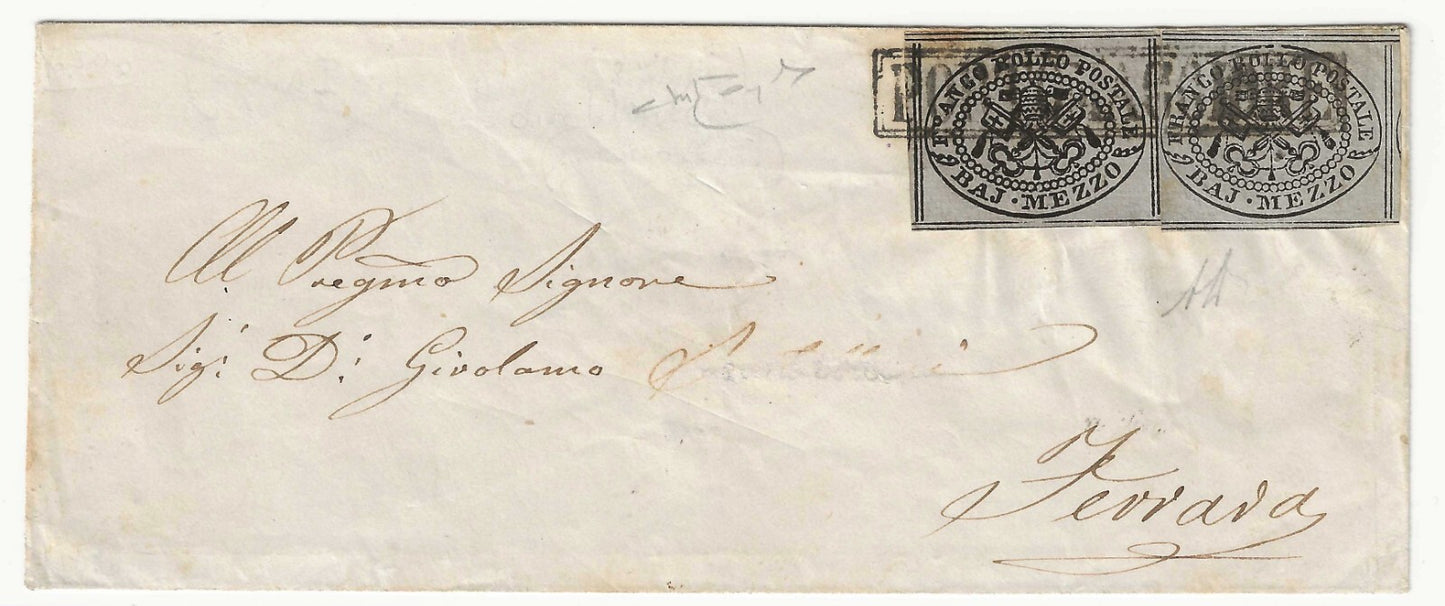 FRANCO BOLLO POSTALE
BAJ·MEZZO
FRANCO BOLLO POSTALE
BAJ·MEZZO
All Pregmo Signore
Sigr. Dr. Girolamo
Ferrara